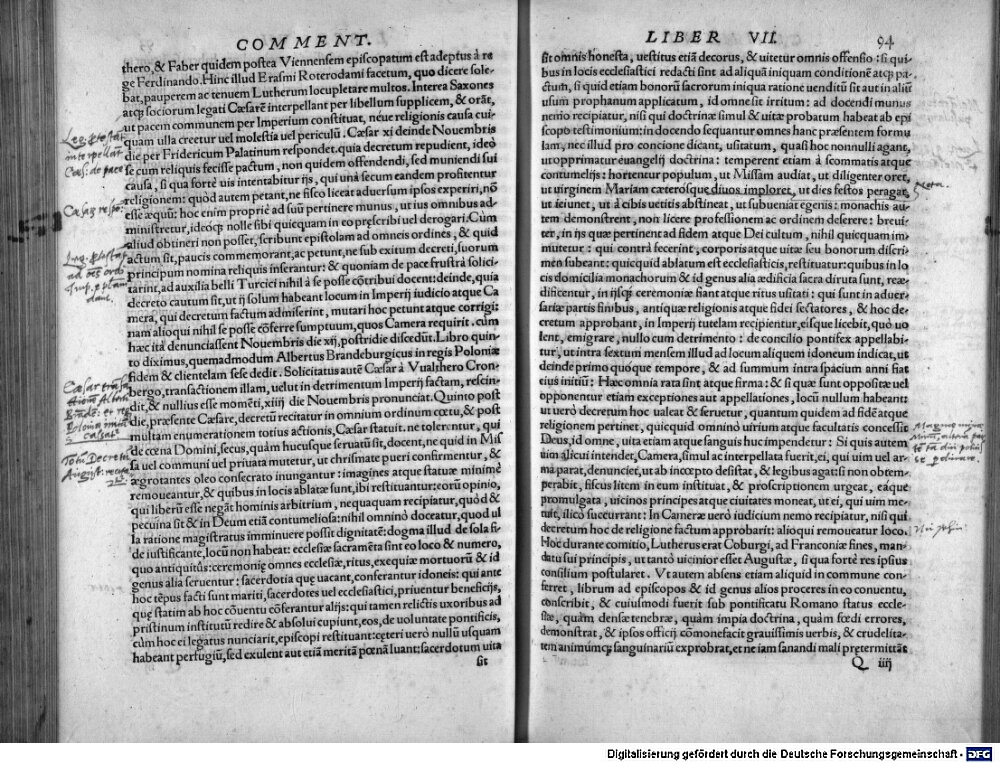 COMMENT.
thero, & Faber quidem postea Viennensem episcopatum est adeptus à re
ge Ferdinando. Hinc illud Erasmi Roterodami facetum, quo dicere sole-
bat, pauperem ac tenuem Lutherum locupletare multos. Interea Saxones
atq; sociorum legati Cæsarē interpellant per libellum supplicem, & orāt,
ut pacem communem per Imperium constituat, néue religionis causa cui-
quam ulla creetur uel molestia uel periculū. Cæsar xi deinde Nouembris
die per Fridericum Palatinum respondet. quia decretum repudient, ideò
se cum reliquis fecisse pactum, non quidem offendendi, sed muniendi sui
causa, si qua fortè uis intentabitur ijs, qui unà secum eandem profitentur
religionem: quòd autem petant, ne fisco liceat aduersum ipsos experiri, nō
esse æquū: hoc enim propriè ad suū pertinere munus, ut ius omnibus ad-
ministretur, ideoq; nolle sibi quicquam in eo præscribi uel derogari. Cùm
aliud obtineri non posset, scribunt epistolam ad omneis ordines, & quid
actum sit, paucis commemorant, ac petunt, ne sub exitum decreti, suorum
principum nomina reliquis inserantur: & quoniam de pace frustrà solici-
tarint, ad auxilia belli Turcici nihil à se posse cōtribui docent: deinde, quia
decreto cautum sit, ut ij solum habeant locum in Imperij iudicio atque Ca
mera, qui decretum factum admiserint, mutari hoc petunt atque corrigi:
nam alioqui nihil se posse cōferre sumptuum, quos Camera requirit. cùm
hæc ità denunciassent Nouembris die xij, postridie discedūt. Libro quin-
to diximus, quemadmodum Albertus Brandeburgicus in regis Poloniæ
fidem & clientelam sese dedit. Solicitatus autē Cæsar à Vualthero Cron-
bergo, transactionem illam, uelut in detrimentum Imperij factam, rescin-
dit, & nullius esse momēti, xiiij die Nouembris pronunciat. Quinto post
die, præsente Cæsare, decretū recitatur in omnium ordinum cœtu, & post
multam enumerationem totius actionis, Cæsar statuit. ne tolerētur, qui
de cœna Domini, secus, quàm hucusque seruatū sit, docent, ne quid in Mis
sa uel communi uel priuata mutetur, ut chrismate pueri confirmentur, &
ægrotantes oleo consecrato inungantur: imagines atque statuæ minimè
remoueantur, & quibus in locis ablatæ sunt, ibi restituantur: eorū opinio,
qui liberū esse negāt hominis arbitrium, nequaquam recipiatur, quòd &
pecuina sit & in Deum etiā contumeliosa: nihil omninò doceatur, quod ul
la ratione magistratus imminuere possit dignitatē: dogma illud de sola fi-
de iustificante, locū non habeat: ecclesiæ sacramēta sint eo loco & numero,
quo antiquitùs: ceremonię omnes ecclesiæ, ritus, exequiæ mortuorū & id
genus alia seruentur: sacerdotia quę uacant, conferantur idoneis: qui ante
hoc tēpus facti sunt mariti, sacerdotes uel ecclesiastici, priuentur beneficijs,
quę statim ab hoc cōuentu cōferantur alijs: qui tamen relictis uxoribus ad
pristinum institutū redire & absolui cupiunt, eos, de uoluntate pontificis,
cùm hoc ei legatus nunciarit, episcopi restituant: cęteri uerò nullū usquam
habeant perfugiū, sed exulent aut etiā meritā pœnā luant: sacerdotum uita
sit
Cæsar respo:
LIBER VII.
94
sit omnis honesta, uestitus etiā decorus, & uitetur omnis offensio: si qui-
bus in locis ecclesiastici redacti sint ad aliquā iniquam conditionē atq; pa-
ctum, si quid etiam bonorū sacrorum iniqua ratione uenditū sit aut in aliū
usum prophanum applicatum, id omne sit irritum: ad docendi munus
nemo recipiatur, nisi qui doctrinæ simul & uitæ probatum habeat ab epi
scopo testimonium: in docendo sequantur omnes hanc præsentem formu
lam, nec illud pro concione dicant, usitatum, quasi hoc nonnulli agant,
ut opprimatur euangelij doctrina: temperent etiam à scommatis atque
contumelijs: hortentur populum, ut Missam audiat, ut diligenter oret,
ut uirginem Mariam cæterosque diuos imploret, ut dies festos peragat,
ut ieiunet, ut à cibis uetitis abstineat, ut subueniat egenis: monachis au-
tem demonstrent, non licere professionem ac ordinem deserere: breui-
ter, in ijs quæ pertinent ad fidem atque Dei cultum, nihil quicquam im-
mutetur: qui contrà fecerint, corporis atque uitæ seu bonorum discri-
men subeant: quicquid ablatum est ecclesiasticis, restituatur: quibus in lo
cis domicilia monachorum & id genus alia ædificia sacra diruta sunt, reæ-
dificentur, in ijsq; ceremoniæ fiant atque ritus usitati: qui sunt in aduer-
sariæ partis finibus, antiquæ religionis atque fidei sectatores, & hoc de-
cretum approbant, in Imperij tutelam recipientur, eisque licebit, quò uo
lent, emigrare, nullo cum detrimento: de concilio pontifex appellabi-
tur, ut intra sextum mensem illud ad locum aliquem idoneum indicat, ut
deinde primo quoque tempore, & ad summum intra spacium anni fiat
eius initiū: Hæc omnia rata sint atque firma: & si quæ sunt oppositæ uel
opponentur etiam exceptiones aut appellationes, locū nullum habeant:
ut uerò decretum hoc ualeat & seruetur, quantum quidem ad fidē atque
religionem pertinet, quicquid omninò uirium atque facultatis concessit
Deus, id omne, uita etiam atque sanguis huc impendetur: Si quis autem
uim alicui intendet, Camera, simul ac interpellata fuerit, ei, qui uim uel ar-
ma parat, denunciet, ut ab incœpto desistat, & legibus agat: si non obtem-
perabit, fiscus litem in eum instituat, & proscriptionem urgeat, eaque
promulgata, uicinos principes atque ciuitates moneat, ut ei, qui uim me-
tuit, ilicò succurrant: In Cameræ uerò iudicium nemo recipiatur, nisi qui
decretum hoc de religione factum approbarit: alioqui remoueatur loco.
Hoc durante comitio, Lutherus erat Coburgi, ad Franconiæ fines, man-
datu sui principis, ut tantò uicinior esset Augustæ, si qua fortè res ipsius
consilium postularet. Vt autem absens etiam aliquid in commune con-
ferret, librum ad episcopos & id genus alios proceres in eo conuentu,
conscribit, & cuiusmodi fuerit sub pontificatu Romano status eccle-
siæ, quàm densæ tenebræ, quàm impia doctrina, quàm fœdi errores,
demonstrat, & ipsos officij cōmonefacit grauissimis uerbis, & crudelita-
tem animumq; sanguinariū exprobrat, et ne iam sanandi mali prætermittāt
Q iiij
Nota.
Digitalisierung gefördert durch die Deutsche Forschungsgemeinschaft - DFG